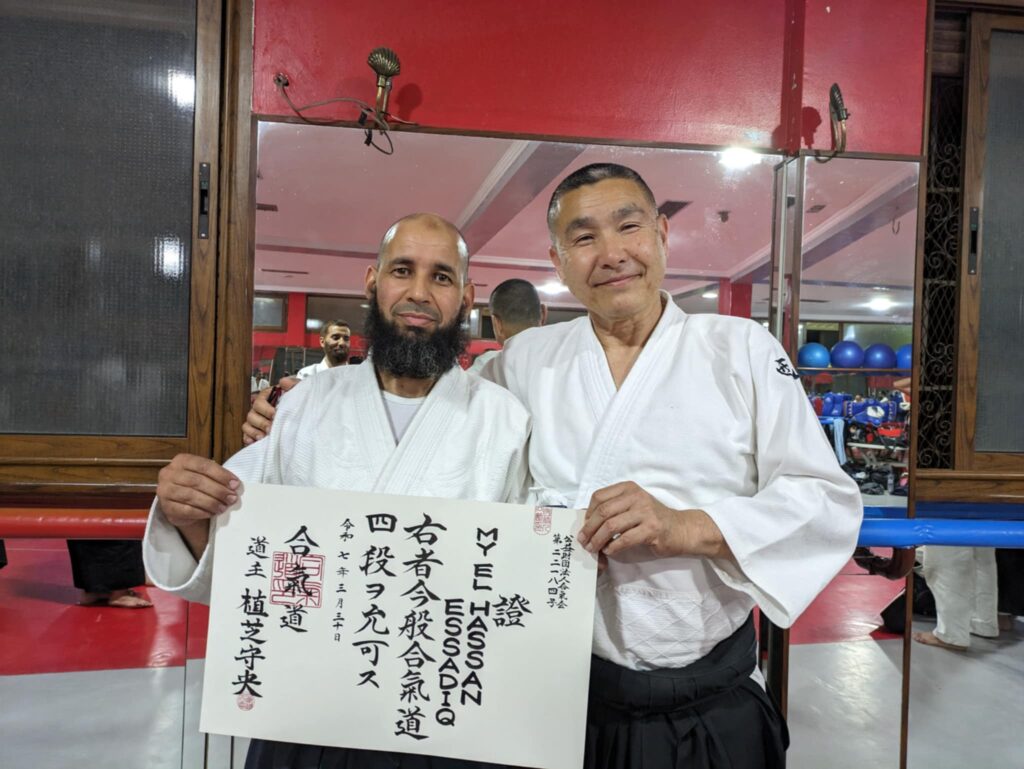 公益財団法人合氣会
第二二一八四号
證
MY EL HASSAN
ESSADIQ
右者今般合氣道
四段ヲ允可ス
令和七年三月三十日
合氣道
道主 植芝守央